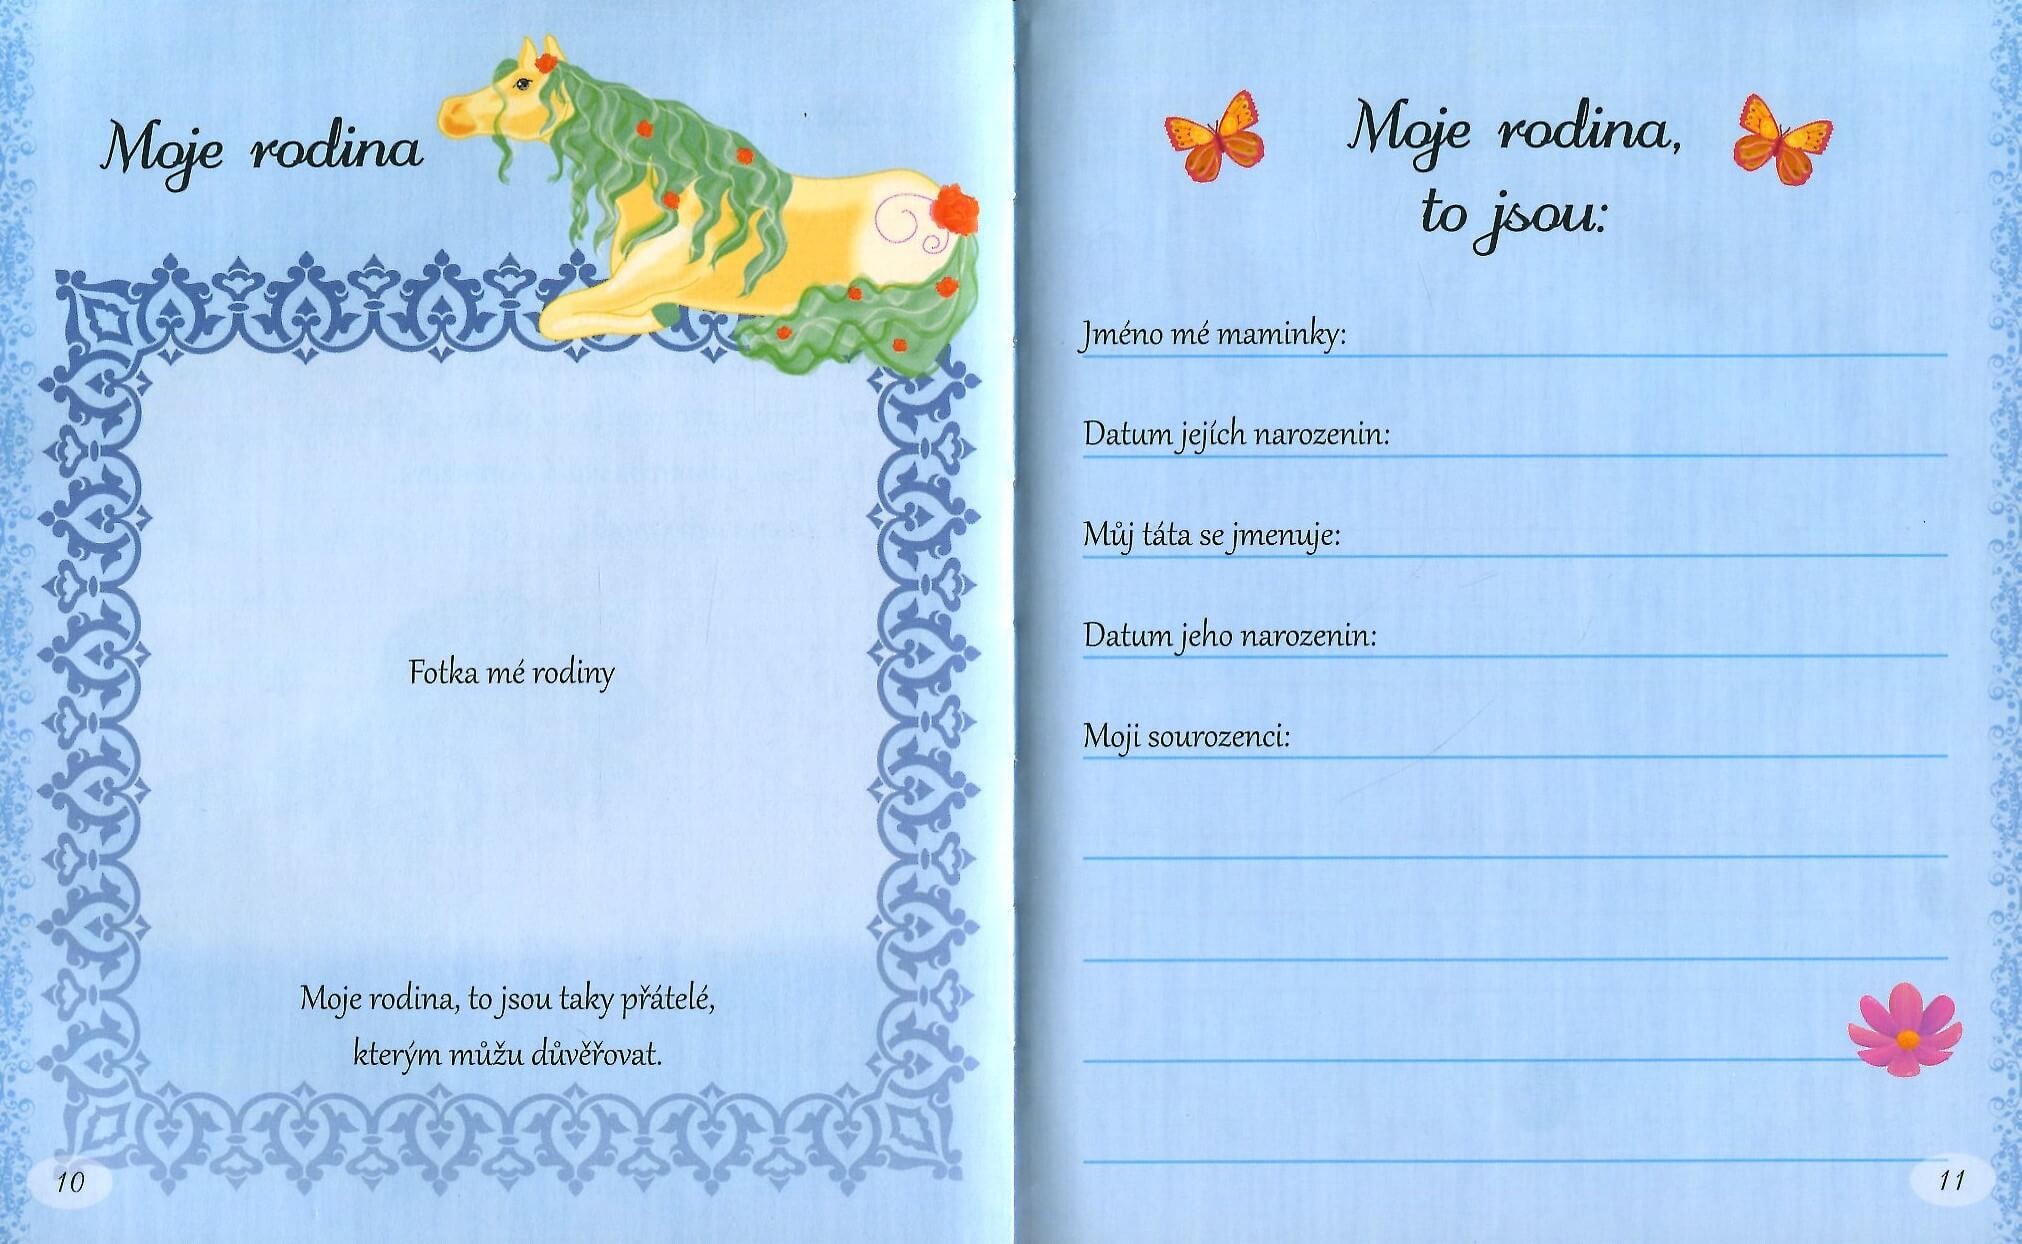 Moje rodina
Fotka mé rodiny
Moje rodina, to jsou taky přátelé,
kterým můžu důvěřovat.
10
Moje rodina,
to jsou:
Jméno mé maminky:
Datum jejích narozenin:
Můj táta se jmenuje:
Datum jeho narozenin:
Moji sourozenci:
11